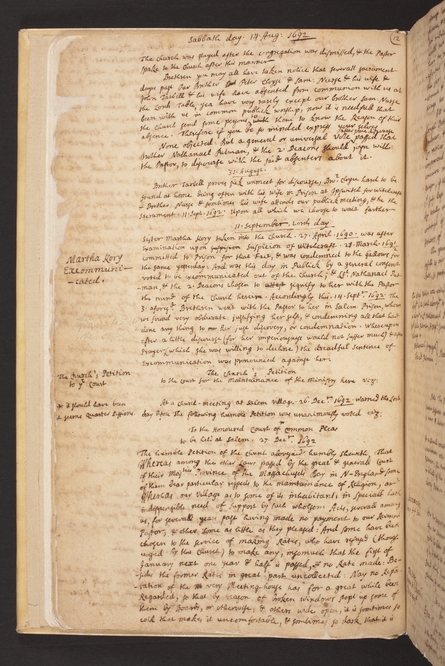 Sabbath day. 14 Aug: 1692
12
The Church was stayed after the congregation was dismissed, & the Pastor
spake to the Church after this manner
Brethren you may all have taken notice that severall sacrament
days past our Brother Peter Cloyse, & Sam: Nurse & his wife &
John Tarbell & his wife have absented from communion with us at
the Lords Table, yea have very rarely, except our Brother Sam: Nurse,
been with us in common publick worship: now it is needfull that
the Church send some persons to them to know the Reason of their
absence. Therefore if you be so minded express your selves
None objected. But a general or universal Vote passed that
Brother Nathanael Putnam, & the 2 Deacons should joyn with
the Pastor, to discourse with the said absenters about it
31 August.
Brother Tarbell proves sick, unmeet for discourse, Bro: Cloyse hard to be
found at home being often with his wife in Prison at Ipswitch for witchcraft
& Brother Nurse & sometimes his wife attends our publick meeting, & he the
sacrament. 11 Sept. 1692. Upon all which we choose to wait farther
11 September. Lords day
Sister Martha Kory taken into the Church 27. April. 1690. was after
examination upon suspicion of Witchcraft
committed to Prison for that Fact, & was condemned to the gallows for
the same yesterday: And was this day in Publick by a general consent
voted to be excommunicated out of the Church; & Lt Nathanael Put-
man, & the 2 Deacons chosen to signify to her with the Pastor
the mind of the Church herein. Accordingly this 14 Sept. 1692. The
3 aforesd Brethren went with the Pastor to her in Salem Prison, whom
we found very obdurate justifying her self, & condemning all that had
done any thing to her just discovery, or condemnation. Whereupon
after a little discourse (for her imperiousness would not suffer much) & after
prayer, which she was willing to decline, the dreadful sentence of
excommunication was pronounced against her.
Martha Kory
Excommuni-
-cated.
The Church's Petition
to ye Court
The Church's Petition
to the Court for the Maintainance of the Ministry here viz:
At a Church-meeting at Salem Village 26. Decr. 1692 warned the Lords
day before the following humble Petition was unanimously voted viz:
To the Honoured Court of Common Pleas
to be held at Salem. 27 Decr. 1692
The humble Petition of the Church abovesd humbly sheweth, That
Whereas among the other Laws passed by the great & general Court
of their Majties Province of the Massachusets Bay in N-England some
of them bear particular respect to the maintainance of Religion, and
Whereas our Village as to some of its inhabitants, in special hath
indispensible need of support by such wholsom Acts, severall among
us, for several years past having made no payment to our Reverend
Pastor, & other some as little as they pleased: And some have been
chosen to the service of making Rates, who have refused (though
urged by the Church) to make any, insomuch that the first of
January next one year & half is passed, & no Rate made: Be-
sides the former Rates in great part uncollected. Nay no Repa-
ration of the very Meeting-house has for a great while been
Regarded, so that by reason of broken windows stopt up some of
them by Boards, or otherwise, & others wide open, it is sometimes so
cold that makes it uncomfortable, & sometimes so dark that it is